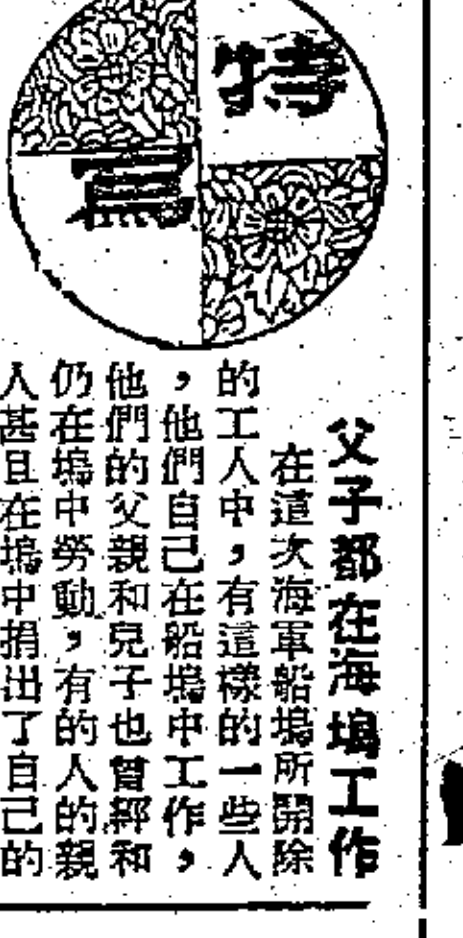 特寫
父子都在海塢工作
在這次海軍船塢所開除
的工人中，有這樣的一些人
，他們自己在船塢中工作，
他們的父親和兒子也曾經和
仍在塢中勞動，有的人的親
人甚且在塢中捐出了自己的